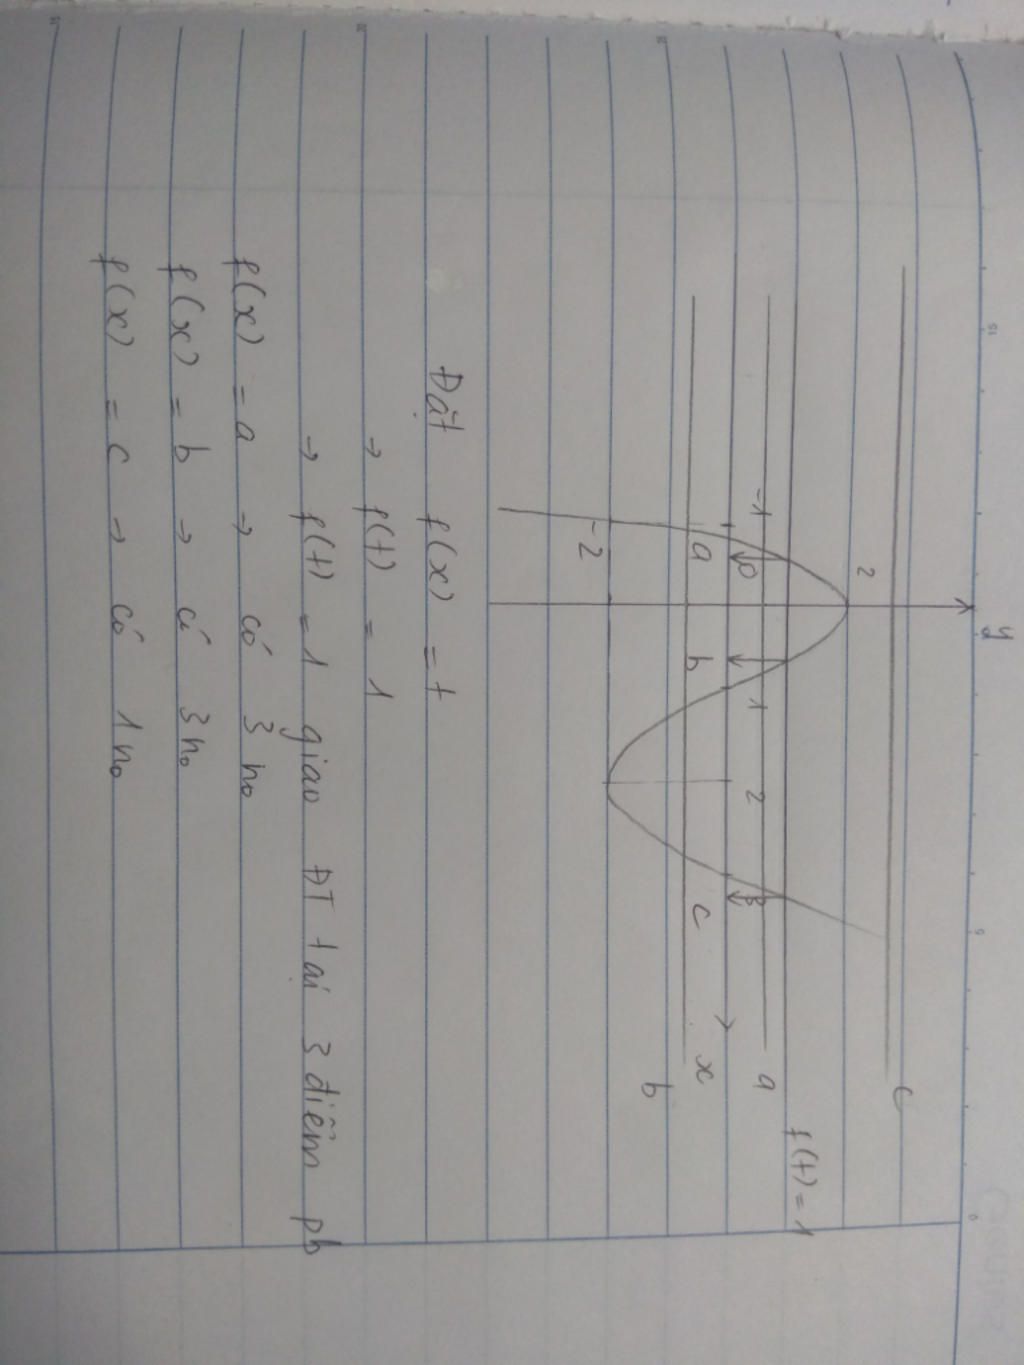 y
c
2
f(t) = 1
-1 0 1 2 3 a
x
a b c
b
-2
Đặt f(x) = t
→ f(t) = 1
→ f(t) = 1 giao ĐT tại 3 điểm pb
f(x) = a → có 3 no
f(x) = b → có 3 no
f(x) = c → có 1 no